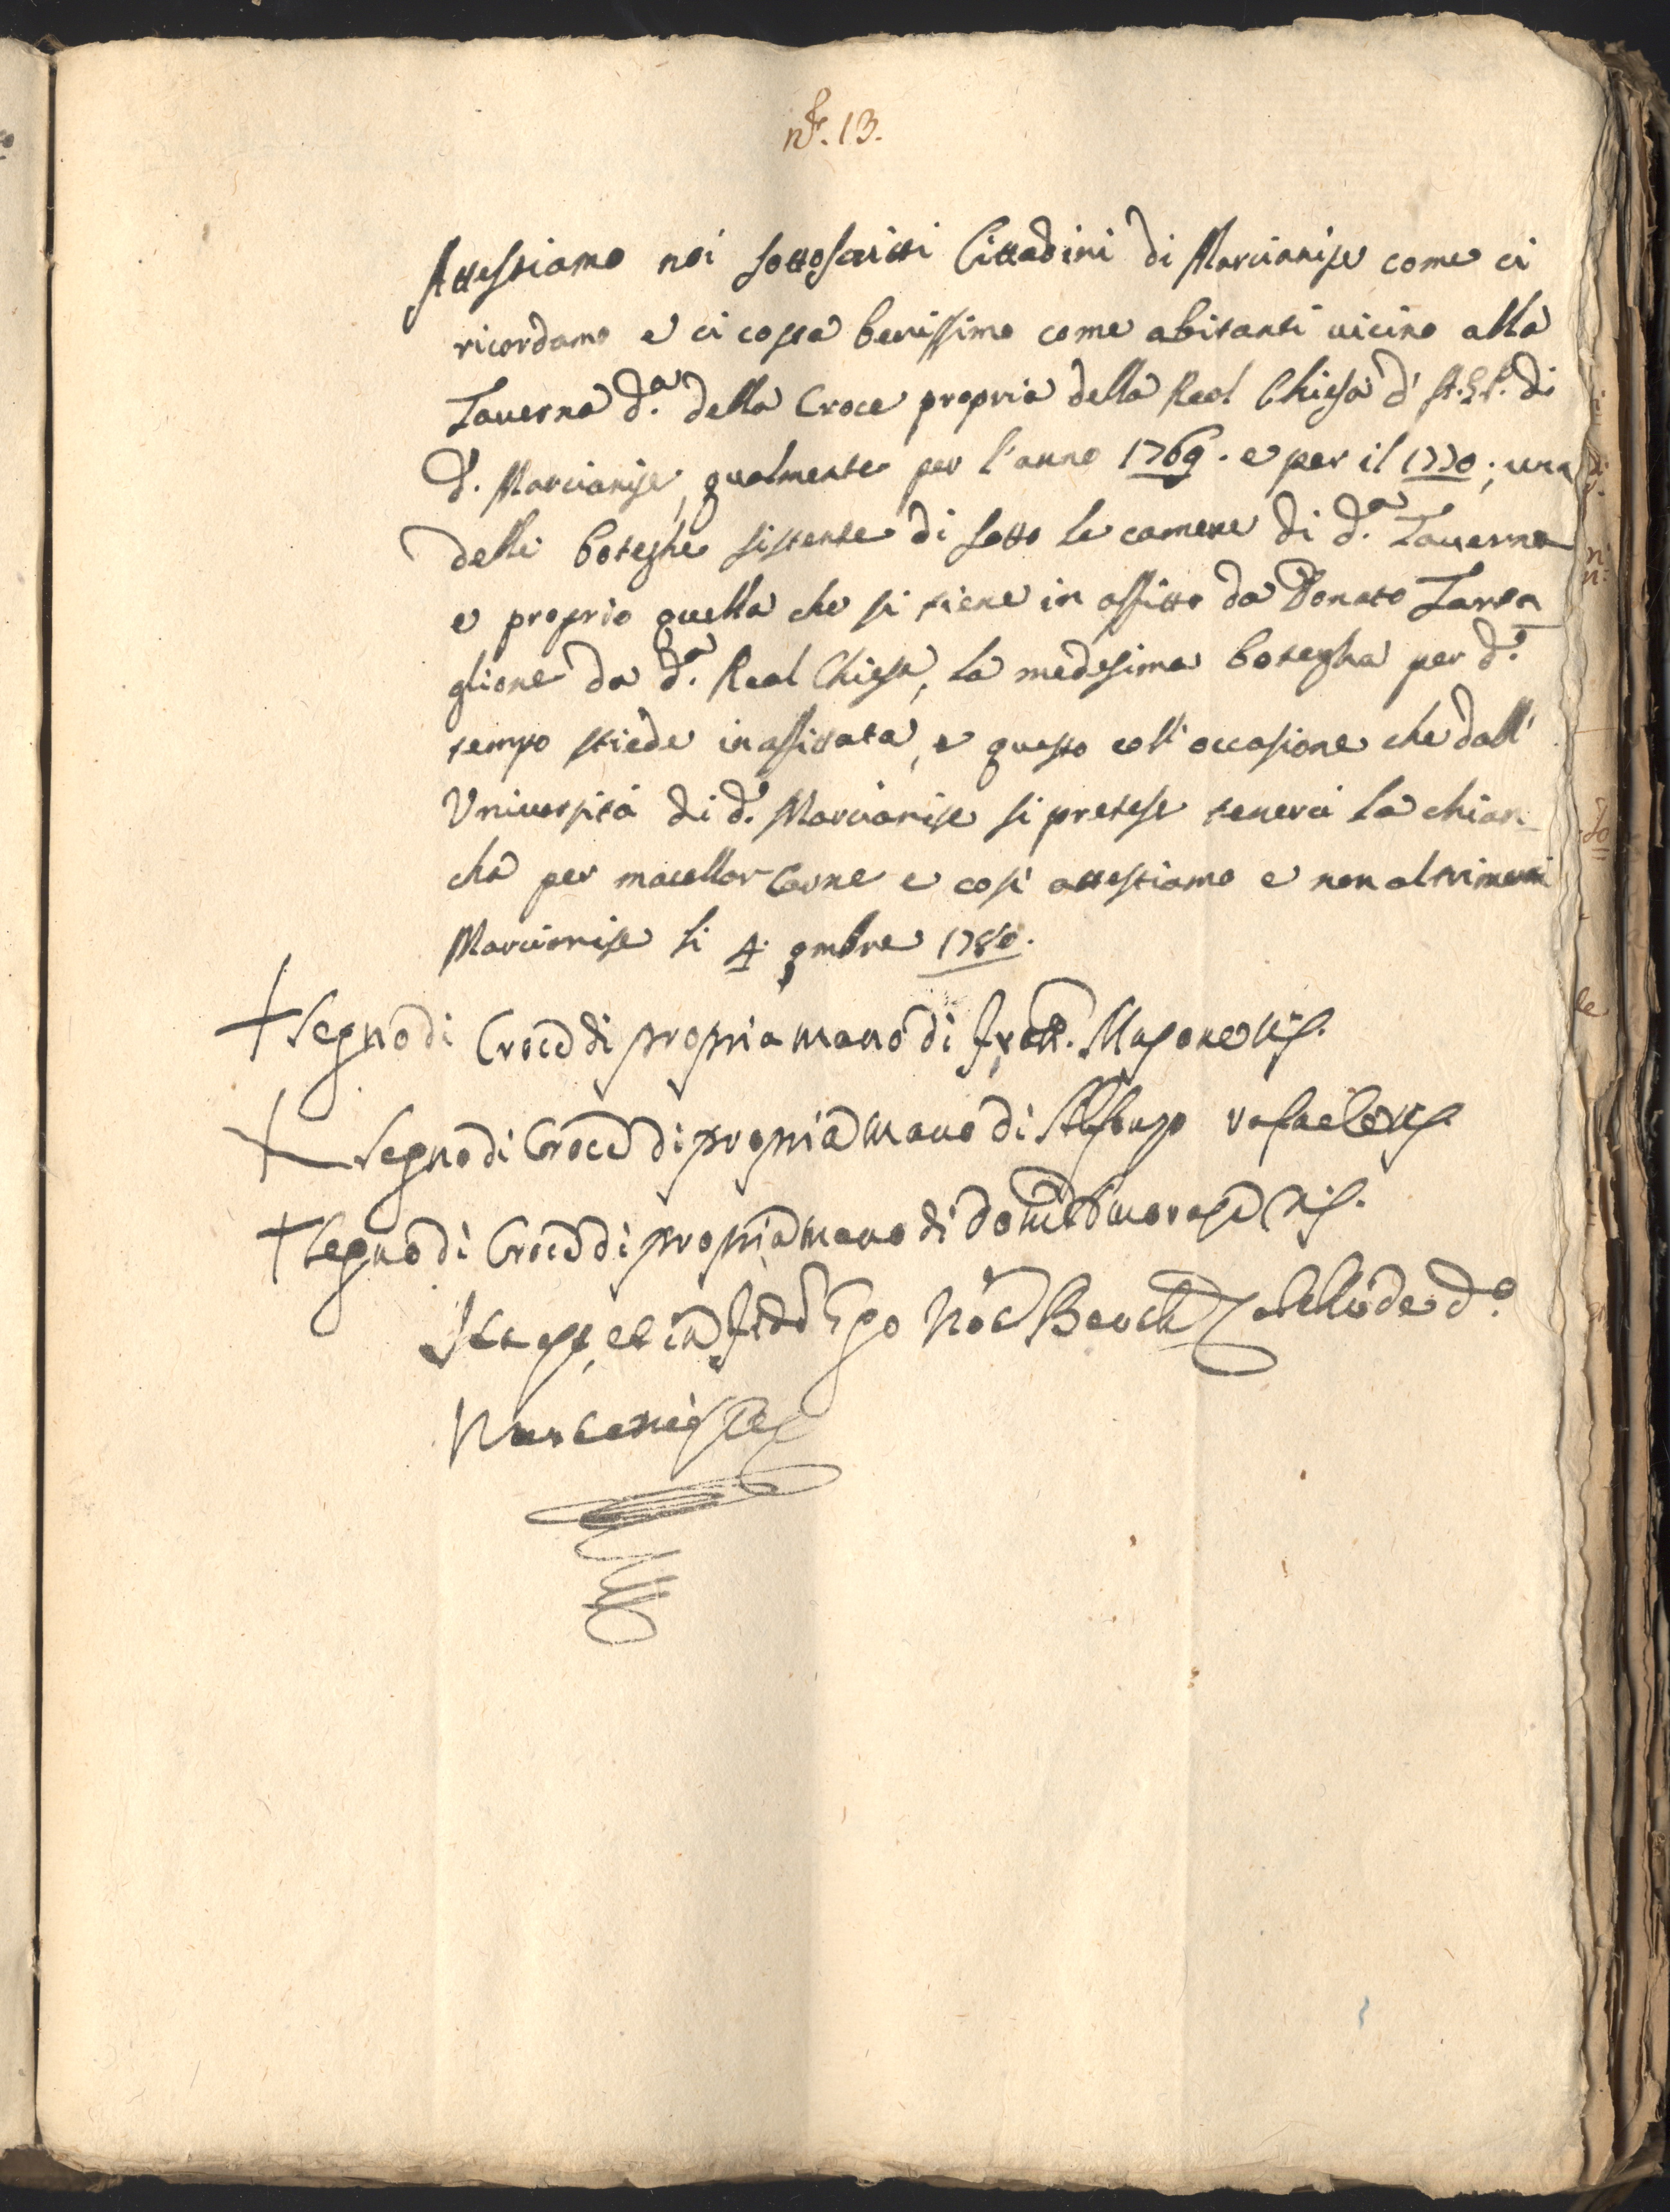 n.º 13.
Attestiamo noi sottoscritti Cittadini di Marcianise come ci
ricordamo e ci costa benissimo come abitanti vicino alla
Taverna d.ª della Croce propria della Real Chiesa d' A.G.P. di
d. Marcianise, qualmente per l'anno 1769. e per il 1770; una
delle boteghe sistente di sotto le camere di d.ª Taverna
e proprio quella che si tiene in affitto da Donato Tarta
glione da d.ª Real Chiesa, la medesima botegha per d.º
tempo stiede inaffittata, e questo coll'occasione che dall'
Università di d.º Marcianise si pretese tenerci la chian
cha per macellar Carne e così attestiamo e non altrimenti
Marcianise li 4. 9mbre 1780.
+ Segno di Croce di propria mano di Masone
+ Segno di Croce di propria mano di Alfonzo rafaele
+ Segno di Croce di propria mano di
Ita est, et in fidem Ego Not. de d.º